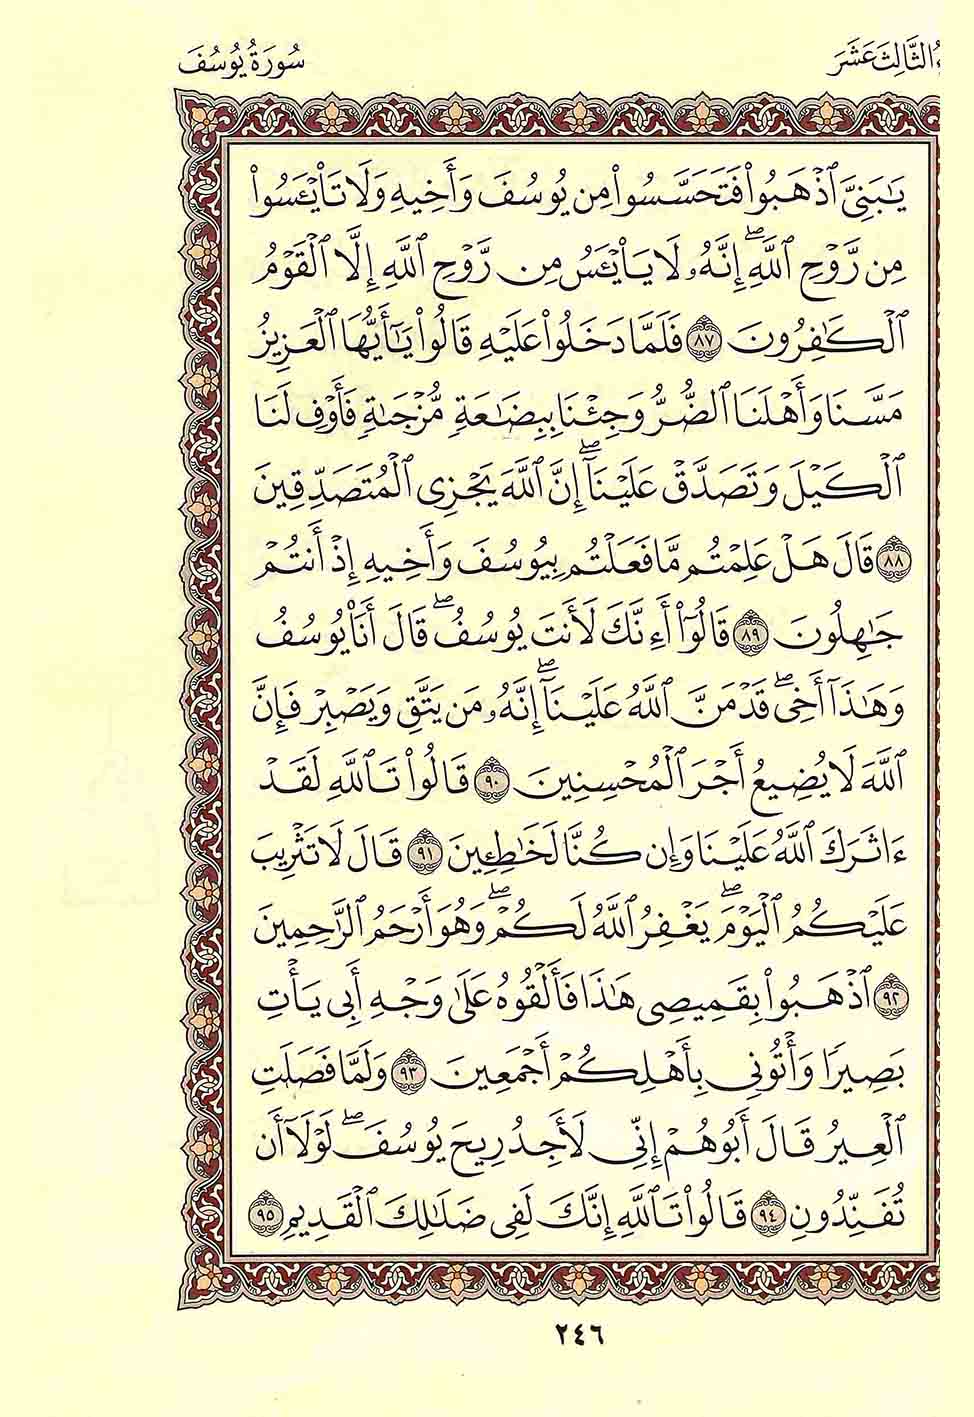 ءُ ٱلثَّالِثَ عَشَرَ سُورَةُ يُوسُفَ
يَٰبَنِيَّ ٱذْهَبُوا۟ فَتَحَسَّسُوا۟ مِن يُوسُفَ وَأَخِيهِ وَلَا تَا۟يْـَٔسُوا۟
مِن رَّوْحِ ٱللَّهِ ۖ إِنَّهُۥ لَا يَا۟يْـَٔسُ مِن رَّوْحِ ٱللَّهِ إِلَّا ٱلْقَوْمُ
ٱلْكَٰفِرُونَ ٨٧ فَلَمَّا دَخَلُوا۟ عَلَيْهِ قَالُوا۟ يَٰٓأَيُّهَا ٱلْعَزِيزُ
مَسَّنَا وَأَهْلَنَا ٱلضُّرُّ وَجِئْنَا بِبِضَٰعَةٍ مُّزْجَىٰةٍ فَأَوْفِ لَنَا
ٱلْكَيْلَ وَتَصَدَّقْ عَلَيْنَآ ۖ إِنَّ ٱللَّهَ يَجْزِى ٱلْمُتَصَدِّقِينَ
٨٨ قَالَ هَلْ عَلِمْتُم مَّا فَعَلْتُم بِيُوسُفَ وَأَخِيهِ إِذْ أَنتُمْ
جَٰهِلُونَ ٨٩ قَالُوٓا۟ أَءِنَّكَ لَأَنتَ يُوسُفُ ۖ قَالَ أَنَا۠ يُوسُفُ
وَهَٰذَآ أَخِى ۖ قَدْ مَنَّ ٱللَّهُ عَلَيْنَآ ۖ إِنَّهُۥ مَن يَتَّقِ وَيَصْبِرْ فَإِنَّ
ٱللَّهَ لَا يُضِيعُ أَجْرَ ٱلْمُحْسِنِينَ ٩٠ قَالُوا۟ تَٱللَّهِ لَقَدْ
ءَاثَرَكَ ٱللَّهُ عَلَيْنَا وَإِن كُنَّا لَخَٰطِـِٔينَ ٩١ قَالَ لَا تَثْرِيبَ
عَلَيْكُمُ ٱلْيَوْمَ ۖ يَغْفِرُ ٱللَّهُ لَكُمْ ۖ وَهُوَ أَرْحَمُ ٱلرَّٰحِمِينَ
٩٢ ٱذْهَبُوا۟ بِقَمِيصِى هَٰذَا فَأَلْقُوهُ عَلَىٰ وَجْهِ أَبِى يَأْتِ
بَصِيرًا وَأْتُونِى بِأَهْلِكُمْ أَجْمَعِينَ ٩٣ وَلَمَّا فَصَلَتِ
ٱلْعِيرُ قَالَ أَبُوهُمْ إِنِّى لَأَجِدُ رِيحَ يُوسُفَ ۖ لَوْلَآ أَن
تُفَنِّدُونِ ٩٤ قَالُوا۟ تَٱللَّهِ إِنَّكَ لَفِى ضَلَٰلِكَ ٱلْقَدِيمِ ٩٥
٢٤٦